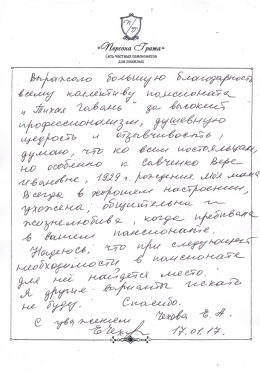 П/Г
«Перспек Грата»
Сеть частных пансионатов
для пожилых
Выражаю большую благодарность
всему коллективу пансионата
„Тихая гавань" за высокий
профессионализм, душевную
щедрость и отзывчивость,
думаю, что ко всем постояльцам,
но особенно к Савченко Вере
Ивановне, 1929 г. рождения. Моя мама
Всегда в хорошем настроении,
ухожена, общительна и
жизнелюбива, когда пребывала
в вашем пансионате.
Надеюсь, что при следующей
необходимости в пансионате
для неё найдётся место.
Я другие варианты искать
не буду. Спасибо.
С уважением Чехова Е. А.
17.01.17.